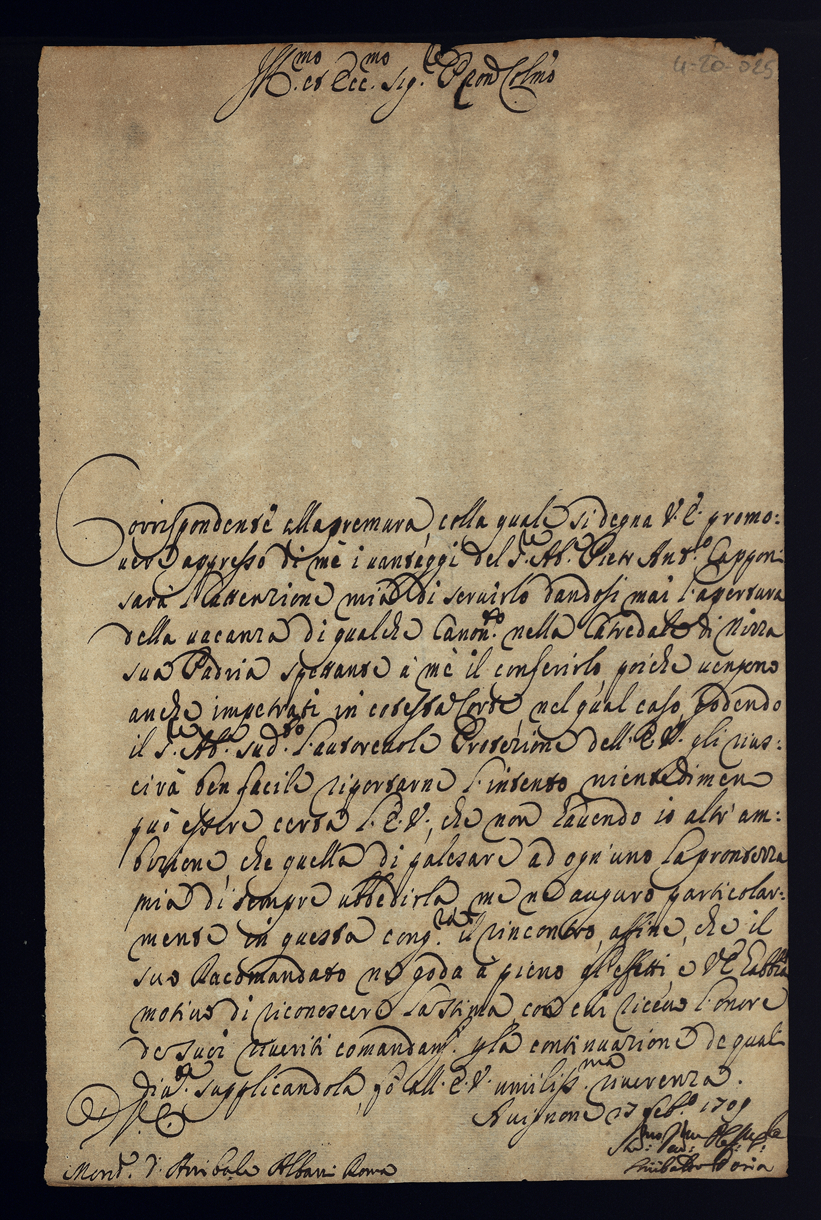 Ill.mo et Ecc.mo Sig.re P.ron Col.mo
4-20-025
Corrispondente alla premura colla quale si degna V.E. promo:
vere appresso di mè i vantaggi del S.r Ab.te Pietr Ant.o Cappon
sarà l'attenzione mia di servirlo dandosi mai l'apertura
della vacanza di qualche Canon.to nella Catredale di Nizza
sua Padria spettante à mè il conferirlo poiche vengono
anche impetrati in cotesta Corte, nel qual caso, godendo
il S.r Ab.te sud.to l'autorevole Protezione dell'E.V. gli rius:
cirà ben facile riportarne l'intento, nientedimeno
può essere certa l'E.V., che non havendo io altr'am:
bizione che quella di palesare ad ogn'uno la prontezza
mia di sempre ubbedirla, me ne auguro particolar:
mente in questa cong.ra il rincontro, affine, che il
suo Racomandato ne goda à pieno gl'effetti e V.E. habbia
motivo di riconoscere la stima, con cui ricevo l'onore
de suoi riveriti comandam.ti p la continuazione de quali
supplicandola, fò all'E.V. umiliss.ma riverenza.
Avignone 27 Feb.o 1709
D. V. E.
Mons.r D. Annibale Albani Roma
Sinibaldo Doria